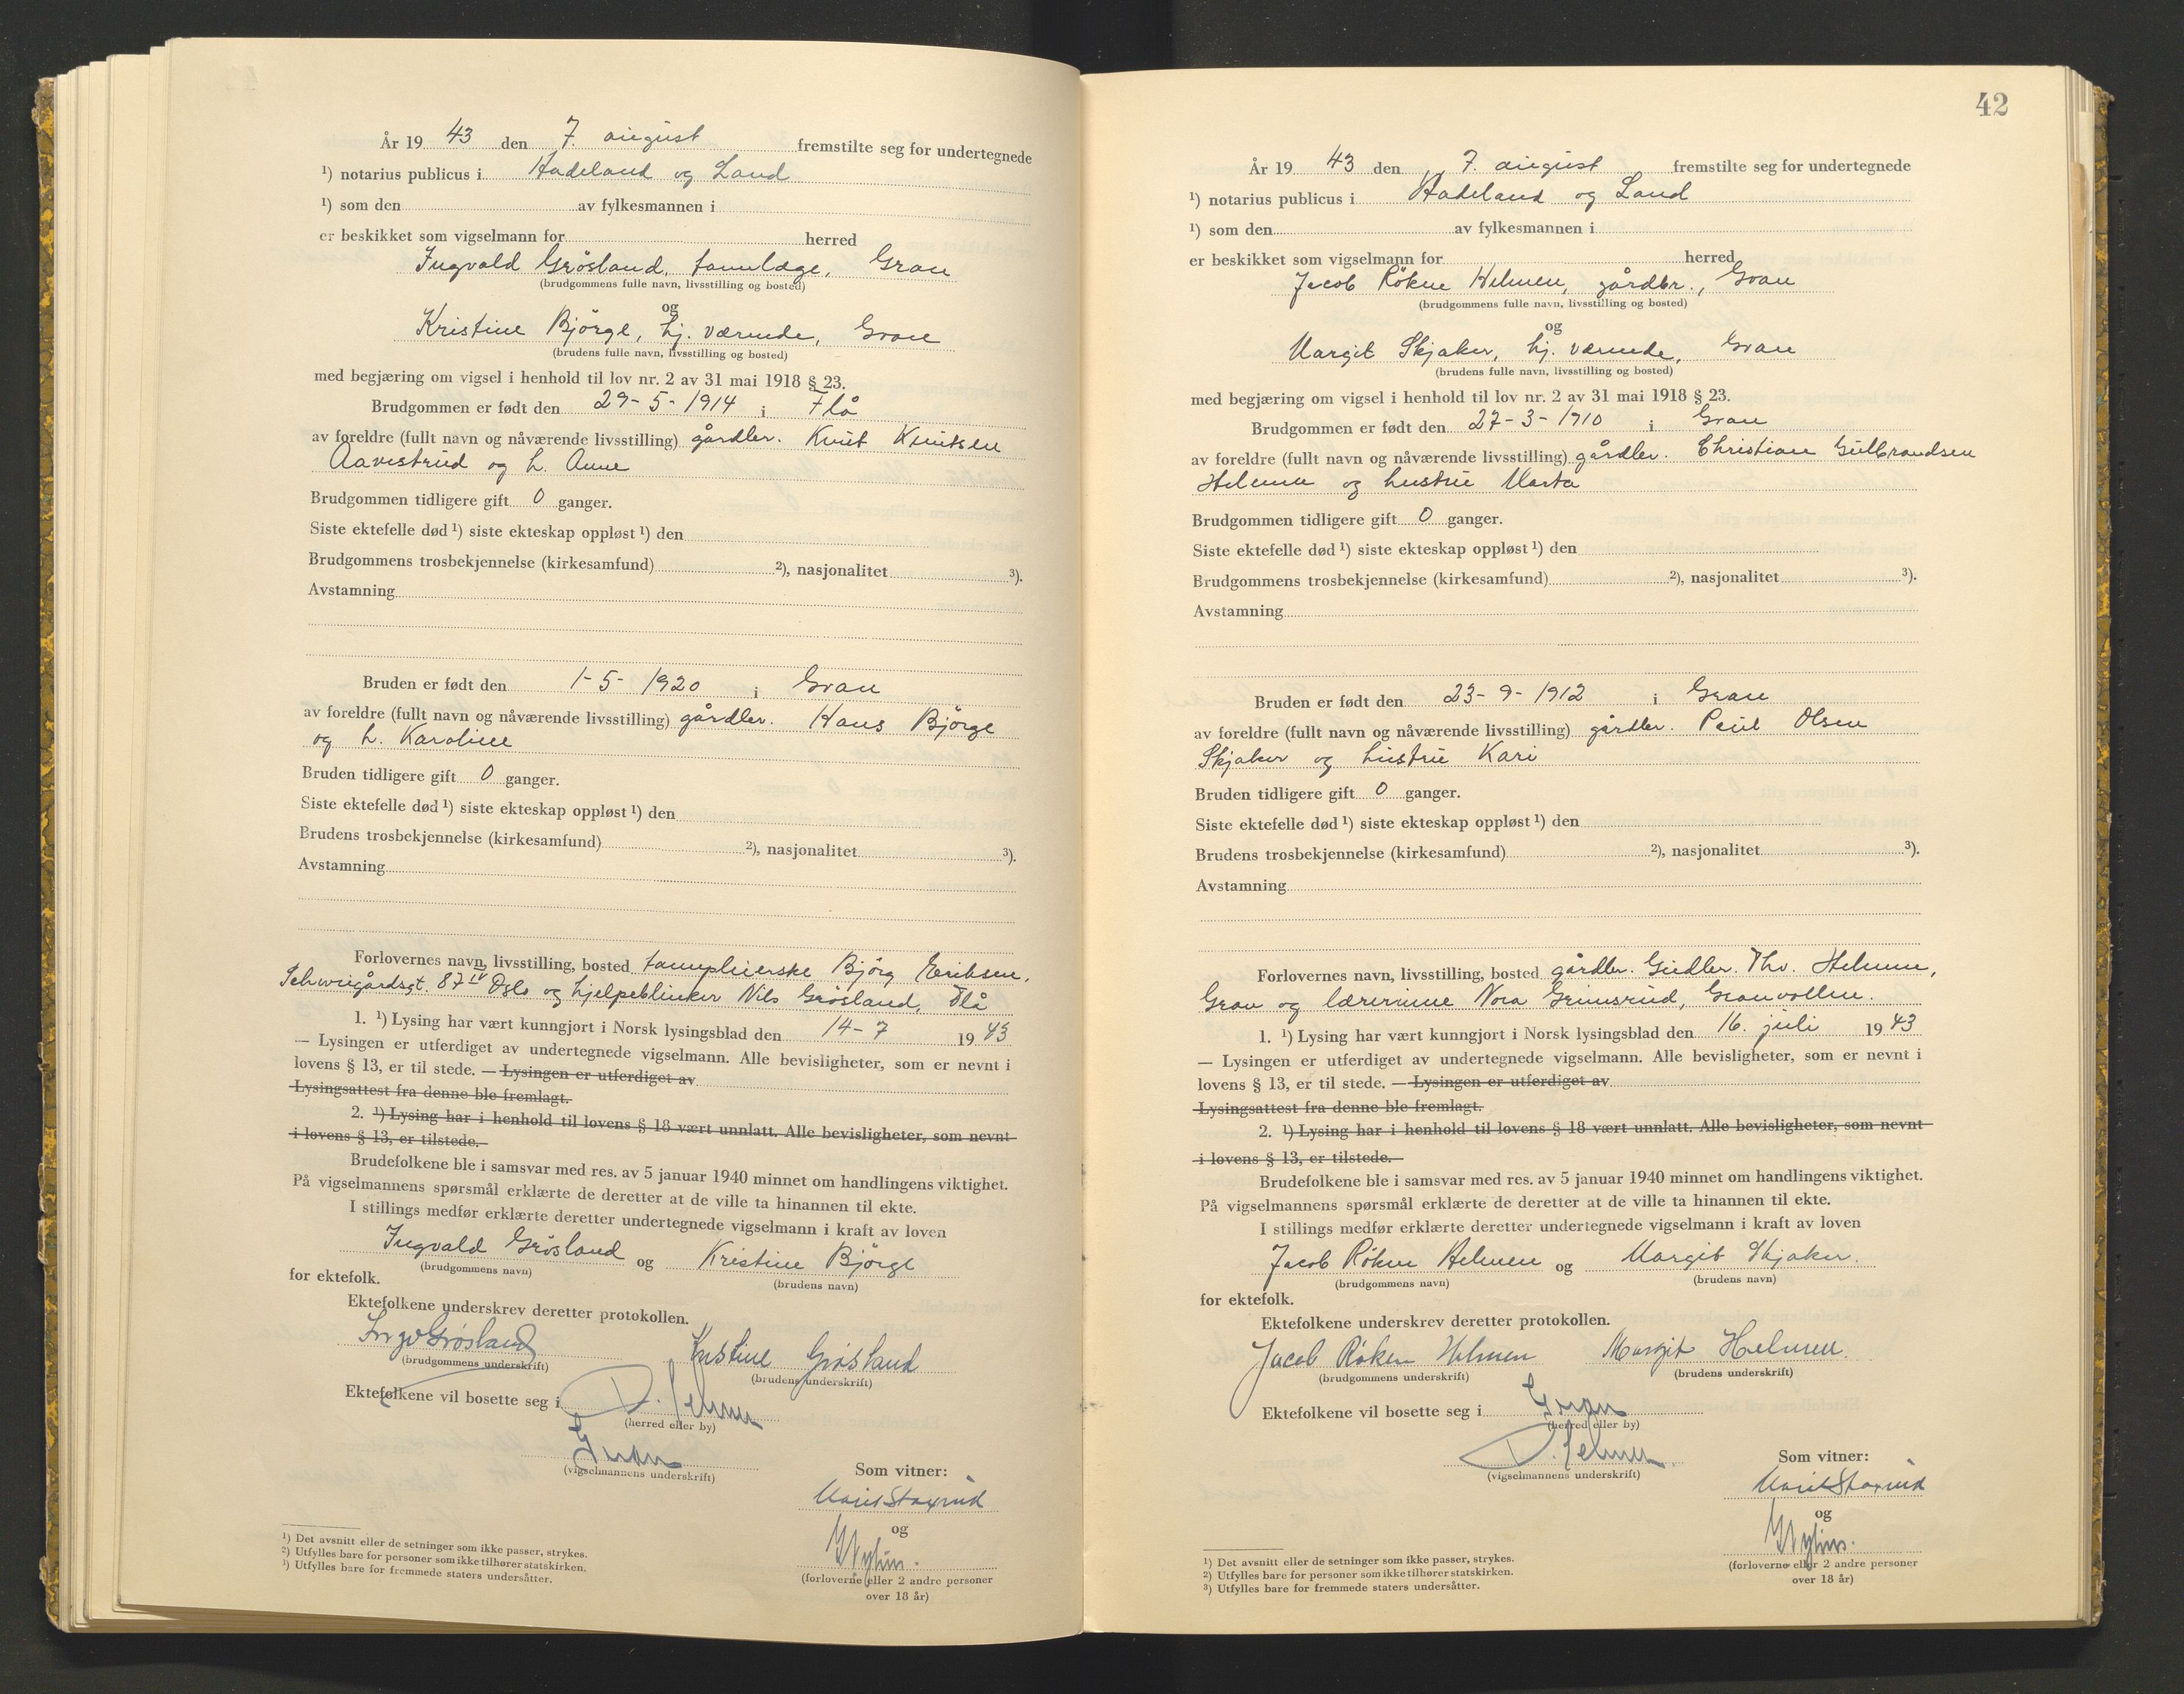 År 19 43 den 7. august fremstilte seg for undertegnede
¹) notarius publicus i Hadeland og Land
¹) som den av fylkesmannen i
er beskikket som vigselmann for herred
Ingvald Grösland, tannlæge, Gran
(brudgommens fulle navn, livsstilling og bosted)
og
Kristine Björge, hj. værende, Gran
(brudens fulle navn, livsstilling og bosted)
med begjæring om vigsel i henhold til lov nr. 2 av 31 mai 1918 § 23.
Brudgommen er født den 29-5-1914 i Flå
av foreldre (fullt navn og nåværende livsstilling) gårdbr. Knut Knutsen
Aavestrud og h. Anne
Brudgommen tidligere gift 0 ganger.
Siste ektefelle død ¹) siste ekteskap oppløst ¹) den
Brudgommens trosbekjennelse (kirkesamfund) ²), nasjonalitet ³).
Avstamning
Bruden er født den 1-5-1920 i Gran
av foreldre (fullt navn og nåværende livsstilling) gårdbr. Hans Björge
og h. Karoline
Bruden tidligere gift 0 ganger.
Siste ektefelle død ¹) siste ekteskap oppløst ¹) den
Brudens trosbekjennelse (kirkesamfund) ²), nasjonalitet ³).
Avstamning
Forlovernes navn, livsstilling, bosted tannpleierske Björg Eriksen,
Schweigårdsgt. 87 IV Oslo og hjelpeblinker Nils Grösland, Flå
1. ¹) Lysing har vært kunngjort i Norsk lysingsblad den 14-7 19 43
— Lysingen er utferdiget av undertegnede vigselmann. Alle bevisligheter, som er nevnt i
lovens § 13, er til stede. — Lysingen er utferdiget av
Lysingsattest fra denne ble fremlagt.
2. ¹) Lysing har i henhold til lovens § 18 vært unnlatt. Alle bevisligheter, som nevnt
i lovens § 13, er tilstede.
Brudefolkene ble i samsvar med res. av 5 januar 1940 minnet om handlingens viktighet.
På vigselmannens spørsmål erklærte de deretter at de ville ta hinannen til ekte.
I stillings medfør erklærte deretter undertegnede vigselmann i kraft av loven
Ingvald Grösland og Kristine Björge
(brudgommens navn) (brudens navn)
for ektefolk.
Ektefolkene underskrev deretter protokollen.
Ingv Grøsland Kristine Grøsland
(brudgommens underskrift) (brudens underskrift)
Ektefolkene vil bosette seg i
(herred eller by)
Gran
(vigselmannens underskrift)
Som vitner:
Marit Staxrud
og
(forloverne eller 2 andre personer
over 18 år)
¹) Det avsnitt eller de setninger som ikke passer, strykes.
²) Utfylles bare for personer som ikke tilhører statskirken.
³) Utfylles bare for fremmede staters undersåtter.
42
År 19 43 den 7. august fremstilte seg for undertegnede
¹) notarius publicus i Hadeland og Land
¹) som den av fylkesmannen i
er beskikket som vigselmann for herred
Jacob Rökne Helmen, gårdbr., Gran
(brudgommens fulle navn, livsstilling og bosted)
og
Margit Skjaker, hj. værende, Gran
(brudens fulle navn, livsstilling og bosted)
med begjæring om vigsel i henhold til lov nr. 2 av 31 mai 1918 § 23.
Brudgommen er født den 27-3-1910 i Gran
av foreldre (fullt navn og nåværende livsstilling) gårdbr. Christian Gulbrandsen
Helmen og hustru Marta
Brudgommen tidligere gift 0 ganger.
Siste ektefelle død ¹) siste ekteskap oppløst ¹) den
Brudgommens trosbekjennelse (kirkesamfund) ²), nasjonalitet ³).
Avstamning
Bruden er født den 23-9-1912 i Gran
av foreldre (fullt navn og nåværende livsstilling) gårdbr. Paul Olsen
Skjaker og hustru Kari
Bruden tidligere gift 0 ganger.
Siste ektefelle død ¹) siste ekteskap oppløst ¹) den
Brudens trosbekjennelse (kirkesamfund) ²), nasjonalitet ³).
Avstamning
Forlovernes navn, livsstilling, bosted gårdbr. Gudbr. Thv. Helmen,
Gran og lærerinne Nora Grinsrud, Granvollen.
1. ¹) Lysing har vært kunngjort i Norsk lysingsblad den 16. juli 19 43
— Lysingen er utferdiget av undertegnede vigselmann. Alle bevisligheter, som er nevnt i
lovens § 13, er til stede. — Lysingen er utferdiget av
Lysingsattest fra denne ble fremlagt.
2. ¹) Lysing har i henhold til lovens § 18 vært unnlatt. Alle bevisligheter, som nevnt
i lovens § 13, er tilstede.
Brudefolkene ble i samsvar med res. av 5 januar 1940 minnet om handlingens viktighet.
På vigselmannens spørsmål erklærte de deretter at de ville ta hinannen til ekte.
I stillings medfør erklærte deretter undertegnede vigselmann i kraft av loven
Jacob Rökne Helmen og Margit Skjaker.
(brudgommens navn) (brudens navn)
for ektefolk.
Ektefolkene underskrev deretter protokollen.
Jacob Røken Helmen Margit Helmen.
(brudgommens underskrift) (brudens underskrift)
Ektefolkene vil bosette seg i Gran
(herred eller by)
(vigselmannens underskrift)
Som vitner:
Marit Staxrud
og
(forloverne eller 2 andre personer
over 18 år)
¹) Det avsnitt eller de setninger som ikke passer, strykes.
²) Utfylles bare for personer som ikke tilhører statskirken.
³) Utfylles bare for fremmede staters undersåtter.